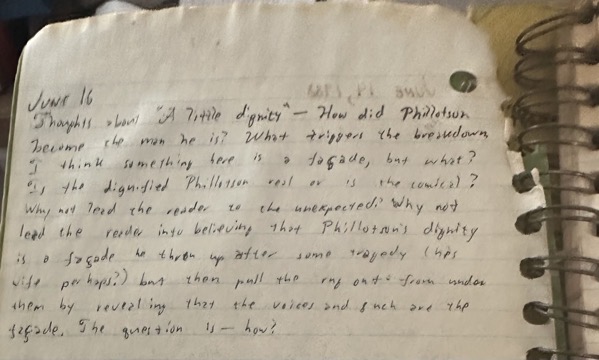 June 16
Thoughts about "A little dignity" — How did Phillotson
become the man he is? What triggers the breakdown
I think something here is a façade, but what?
Is the dignified Phillotson real or is the comical?
Why not lead the reader to the unexpected? Why not
lead the reader into believing that Phillotson's dignity
is a façade he threw up after some tragedy (his
wife perhaps?) but then pull the rug out from under
them by revealing that the voices and such are the
façade. The question is — how?